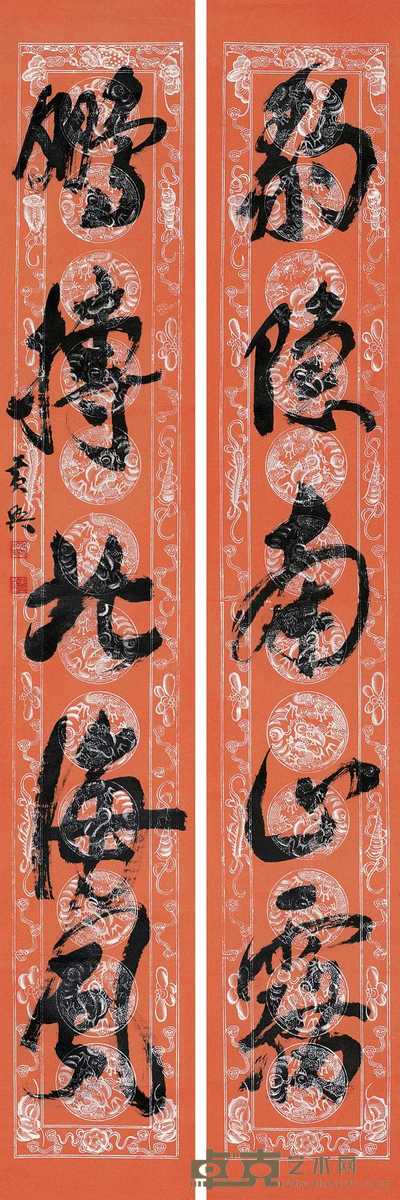 豹隐南山雾
鹏搏北海风
黄兴
卓克艺术网